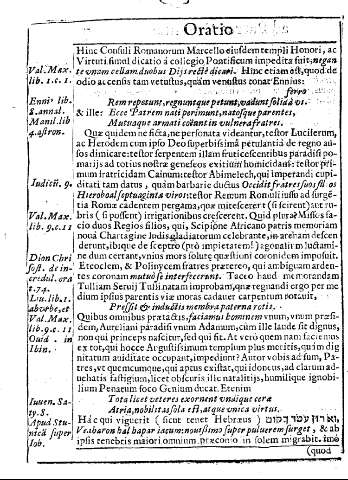 Oratio
Hinc Consuli Romanorum Marcello eiusdem templi Honori, ac
Virtuti simul dicatio à collegio Pontificum impedita fuit, negan-
te vnam cellam duobus Dijs rectè dicari. Hinc etiam est, quod de
odio accensis tam vetustus, quàm venustus conat Ennius:
ferro
Rem repetunt, regnumque petunt, vadunt solida vi.
& ille: Ecce Patrem nati perimunt, natosque parentes,
Mutuaque armati coëunt in vulnera fratres.
Quæ quidem ne ficta, ne personata videantur, testor Luciferum,
ac Herodem cum ipso Deo superbissima petulantia de regno au-
sos dimicare: testor serpentem illam fruticescentibus paradisi po-
marijs ad totius nostræ geneseos exitium sannicidam: testor pri-
mum fratricidam Cainum: testor Abimelech, qui imperandi cupi-
ditati tam datus, quàm barbariè ductus Occidit fratres suos filios
Hierobaal septuaginta viros: testor Remum Romuli iussu ad surge-
tia Romæ cadentem pergama, quæ mitescerent
bris (si possent) irrigationibus crescerent. Quid plura? Missos fa-
cio duos Regios filios, qui, Scipione Africano patris memoriam
noua Charragine Iudis gladiatorum celebrante, in aream descen-
derunt, ibique de sceptro (prò impietatem!) agonali in luctami-
ne dum certant, vnius mors solum quæstioni coronidem imposuit.
Etcoclem, & Polinycem fratres prætereo, qui ambiguam arden-
tes coronam mutuò se interfecerunt. Taceo haud memorandam
Tulliam Seruij Tulli natam improbam, quæ regnandi ergo per me
dium ipsius parentis viæ moras cadauer carpentum notauit,
Pressit & inductis membra paterna rotis.
Quibus omnibus pertractatis, faciamus hominem vnum, vnum præsi-
dem, Aureliani paradisi vnum Adamum, cum ille laude sit dignus,
non qui princeps nascitur, sed qui fit. At verò quem nam faciemus
ex tot, qui hocce Argutissimum templum plus meritis, quàm dig
nitatum auditate occupant, impedunt? Autor vobis ad sum, Pa-
tres, vt quemcumque, qui aptus existat, qui idoneus, ad clarum ad-
uehatis fastigium, licet obscuris ille natalitijs, humilique ignobi-
lium Penatum foco Genium ducat. Etenim
Tota licet veteres exornent vndique ceræ
Atria, nobilitas sola est, atque vnica virtus.
Hàc qui viguerit (sicut tenet Hebræus)
Veaharon hal hapar iacum: nouissimo super puluerem surget, & ab
ipsis tenebris maiori omnium præconio in solem migrabit. imò
(quod
Val. Max.
lib. 1. c. 1.
Enni9 lib.
8. annal.
Manil. lib
4. astron.
Iudicū. 9.
Val. Max.
lib. 9. c. 11
Dion Chri
sost. de in-
credul. ora
t. 74.
Liu. lib. 1.
ab vrbe, et
Val. Max.
lib. 9. c. 11
Ouid. in
Ibin.
Iuuen. Sa-
ty. 8.
Apud Stu-
nicā super
Iob.